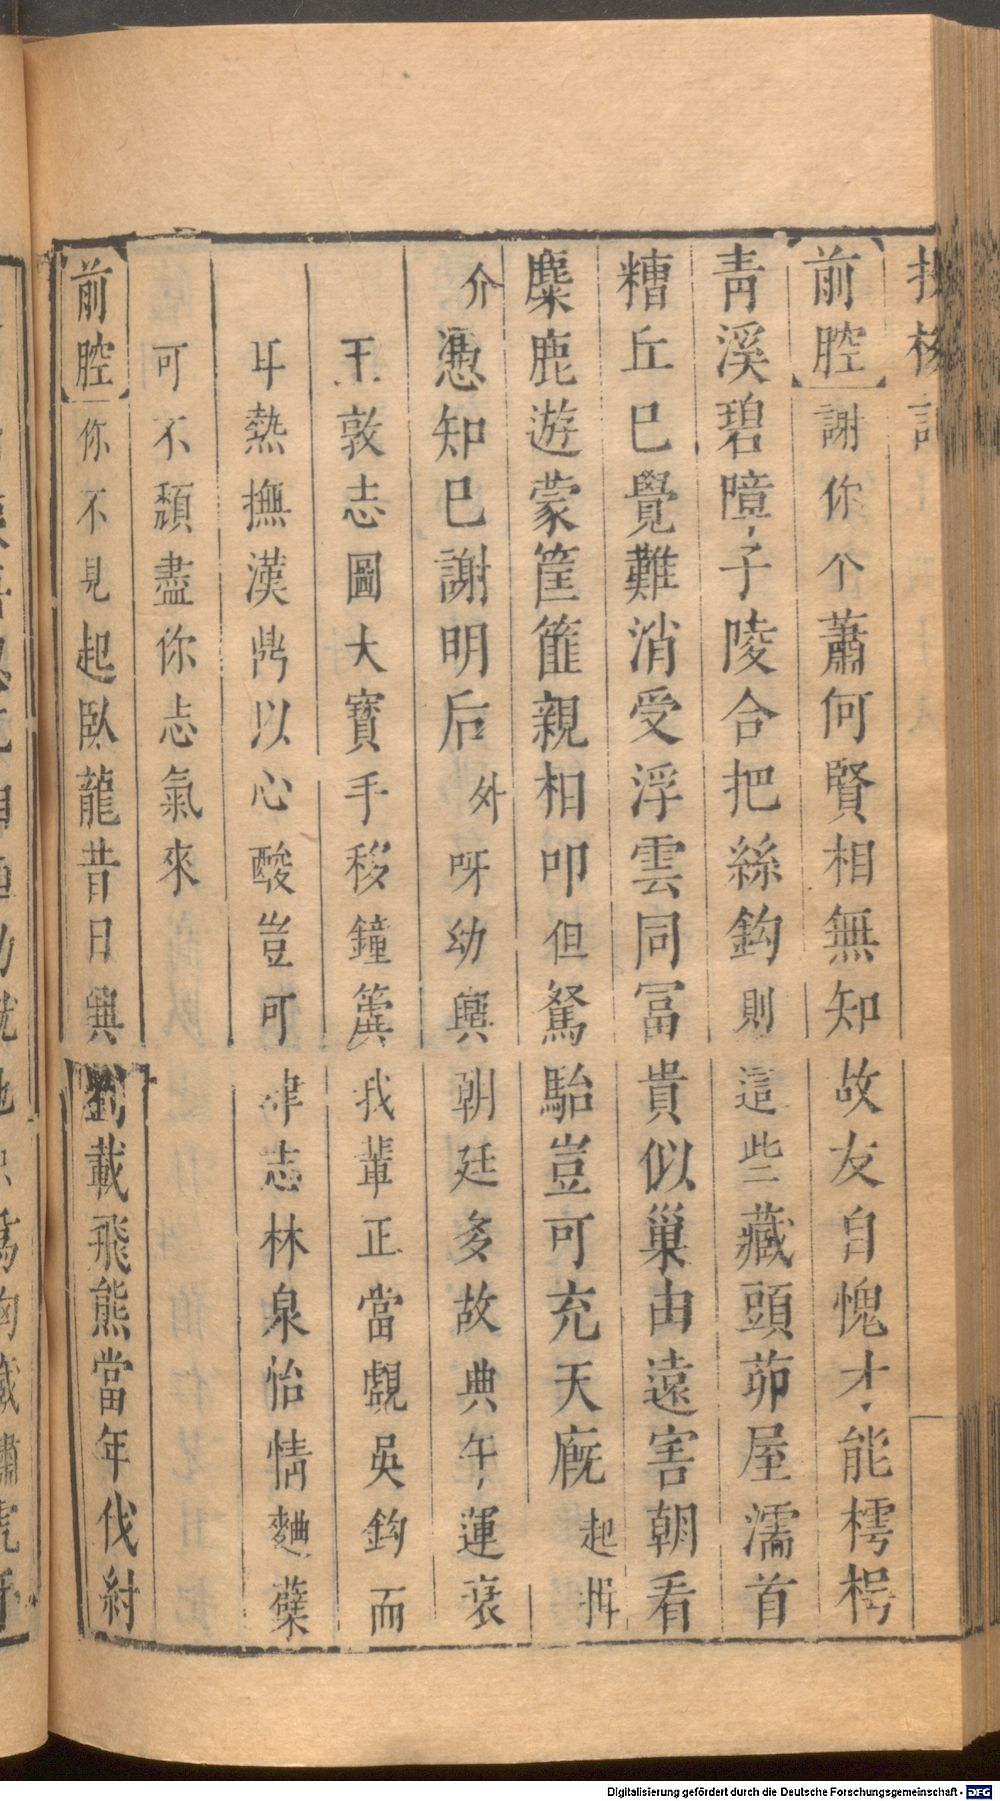 前腔謝你个蕭何賢相無知故友自愧才能樗櫟
青溪碧嶂子陵合把絲鈎則這些藏頭茆屋濡首
糟丘巳覺難消受浮雲同冨貴似巢由遠害朝看
麋鹿遊蒙筐篚親相叩但駑駘豈可充天廐起揖
介慿知巳謝明后外呀幼輿朝廷多故典午運衰
王敦志圖大寶手移鐘簴我輩正當覷吳鈎而
耳熱撫漢鼎以心酸豈可肆志林泉怡情麯蘖
可不頽盡你志氣來
前腔你不見起臥龍昔日興劉載飛熊當年伐紂
Digitalisierung gefördert durch die Deutsche Forschungsgemeinschaft - DFG